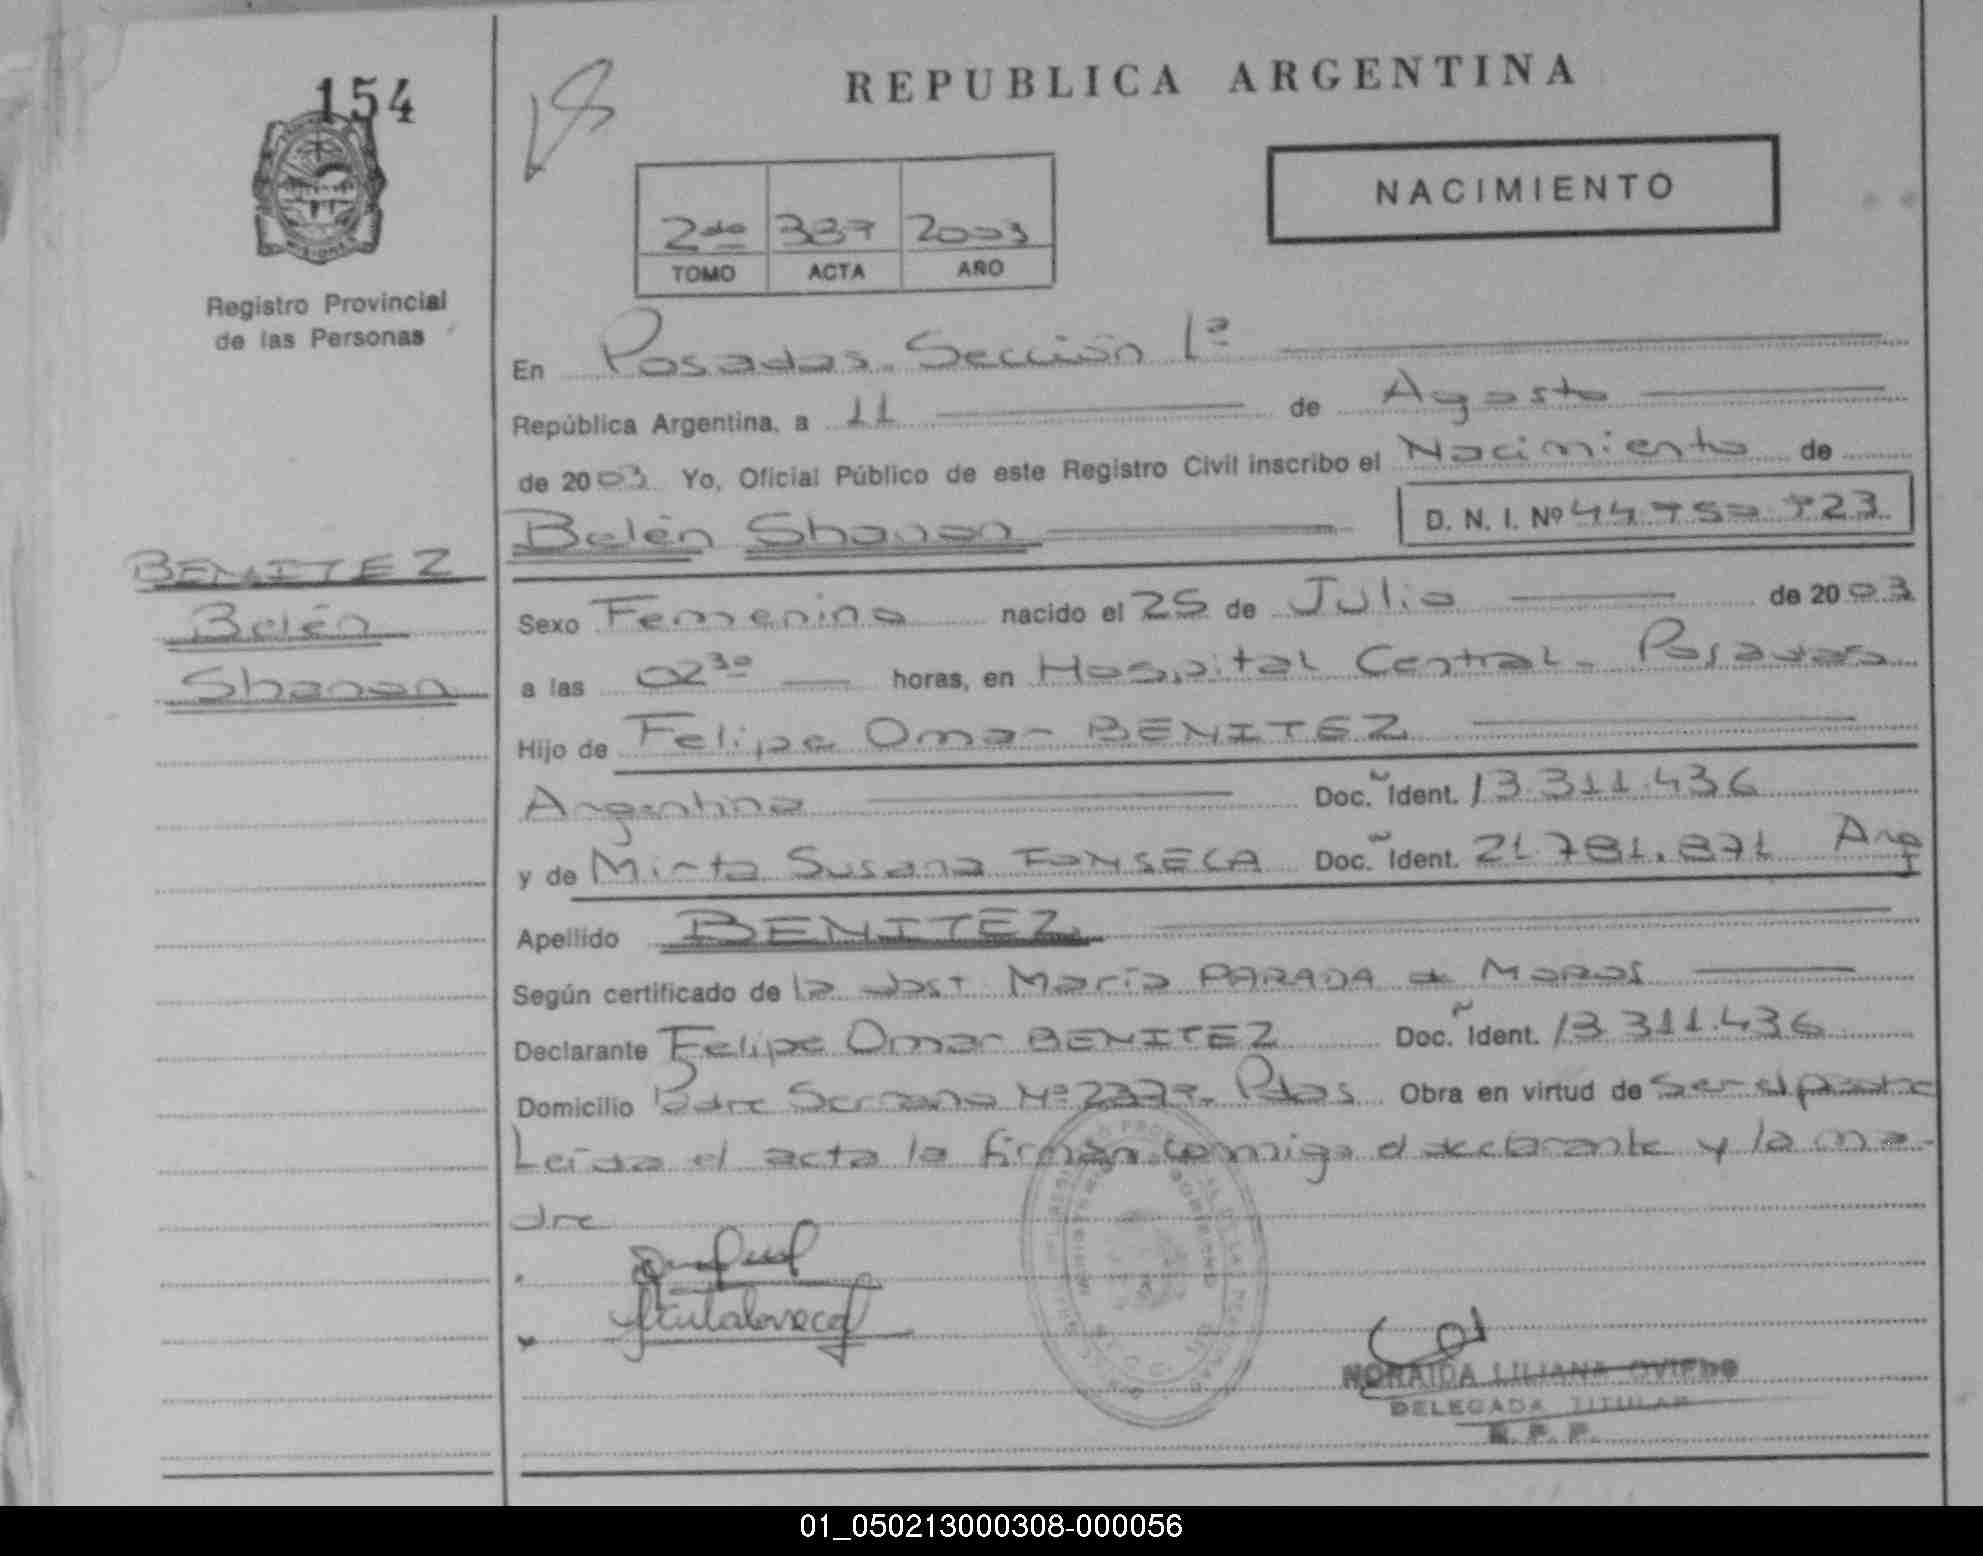 154
REPUBLICA ARGENTINA
NACIMIENTO
2do 337 2003
TOMO ACTA AÑO
Registro Provincial
de las Personas
En Posadas. Sección 1ª
República Argentina, a 11 de Agosto
de 2003 Yo, Oficial Público de este Registro Civil inscribo el Nacimiento de
Belén Shanon D. N. I. Nº
BENITEZ
Belén
Shanon
Sexo Femenino nacido el 25 de Julio de 2003
a las 02³⁰ horas, en Hospital Central - Posadas
Hijo de Felipe Omar BENITEZ
Argentina Doc. Ident. 13.311.436
y de Mirta Susana FONSECA Doc. Ident. 21.781.871 Arg
Apellido BENITEZ
Según certificado de la obst María PARADA de
Declarante Felipe Omar BENITEZ Doc. Ident. 13.311.436
Domicilio Padre Serrano Nº Pdas. Obra en virtud de ser el padre
Leída el acta la firman conmigo el declarante y la ma-
dre
NORAIDA LILIANA OVIEDO
DELEGADA TITULAR
R. P. P.
01_050213000308-000056